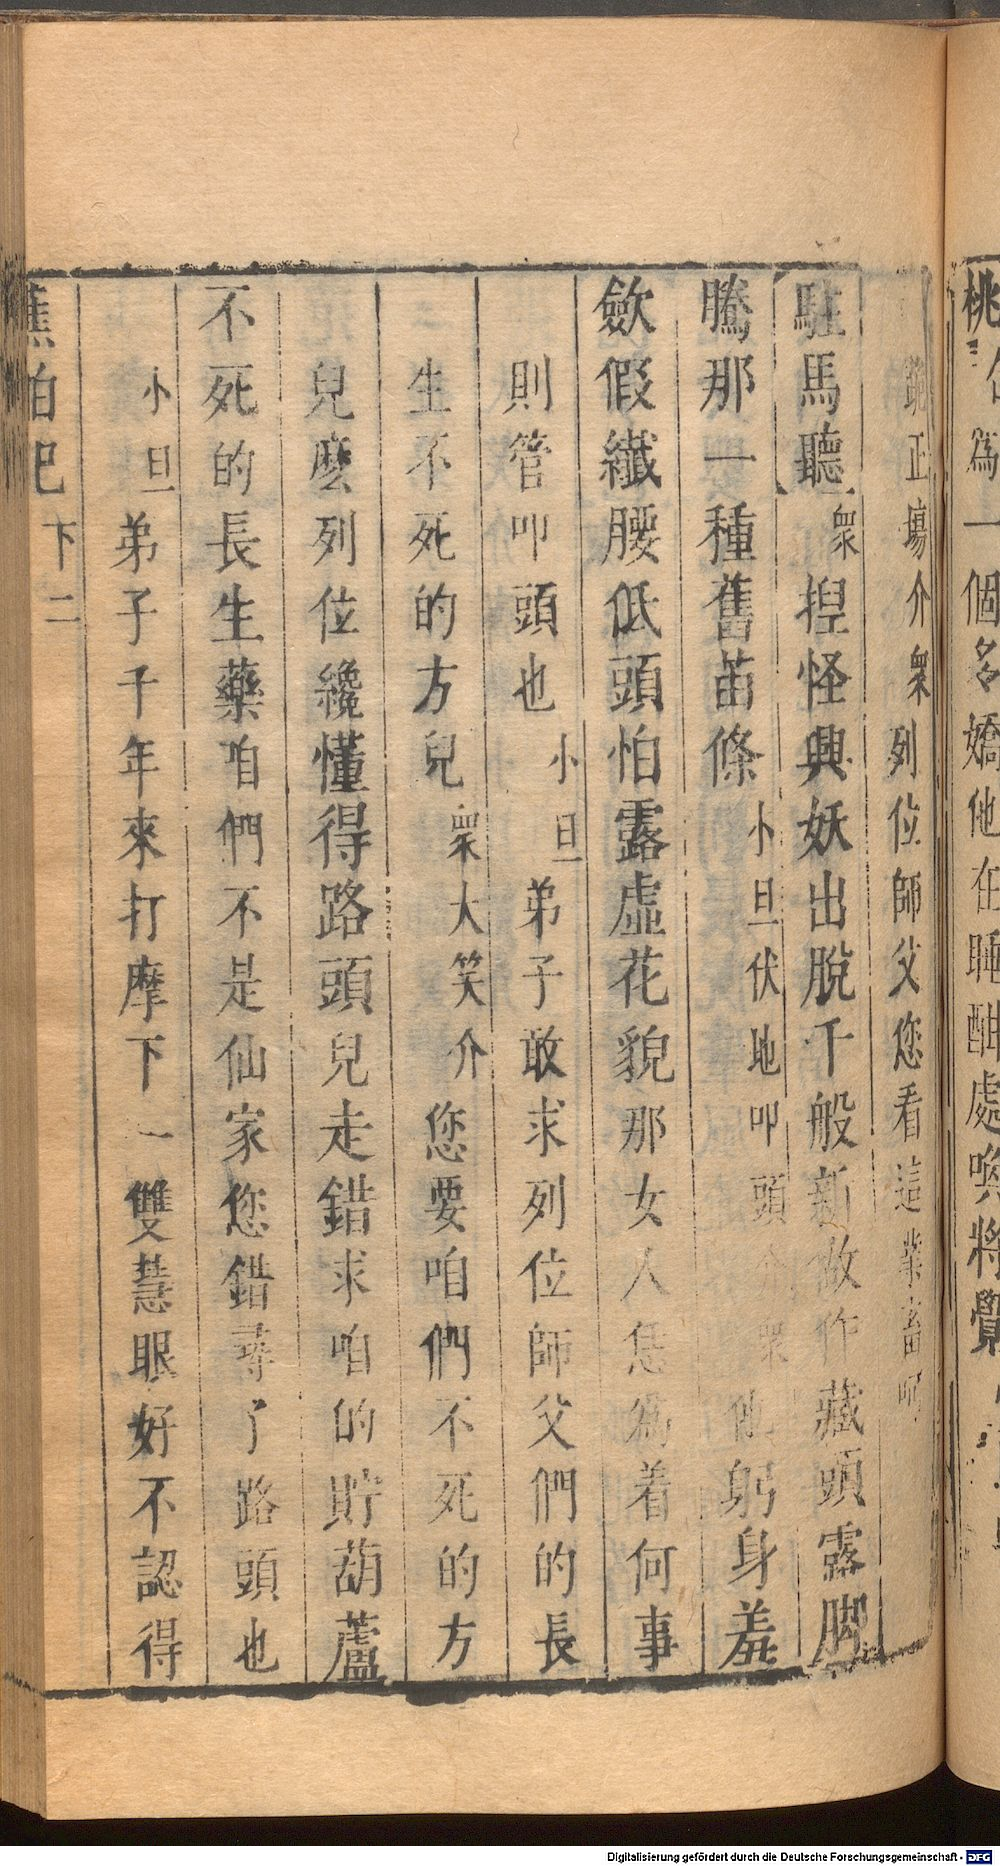 桃
為一個多嬌他在睡酣處喚將覺
跪正場介衆列位師父您看這業畜呵
駐馬聽衆揑怪興妖出脫千般新做作藏頭露脚
騰那一種舊苗條小旦伏地叩頭介衆他躬身羞
歛假纖腰低頭怕露虛花貌那女人恁為着何事
則管叩頭也小旦弟子敢求列位師父們的長
生不死的方兒衆大笑介您要咱們不死的方
兒麽列位纔懂得路頭兒走錯求咱的貯葫蘆
不死的長生藥咱們不是仙家您錯尋了路頭也
小旦弟子千年來打摩下一雙慧眼好不認得
蕉帕記下二
Digitalisierung gefördert durch die Deutsche Forschungsgemeinschaft - DFG